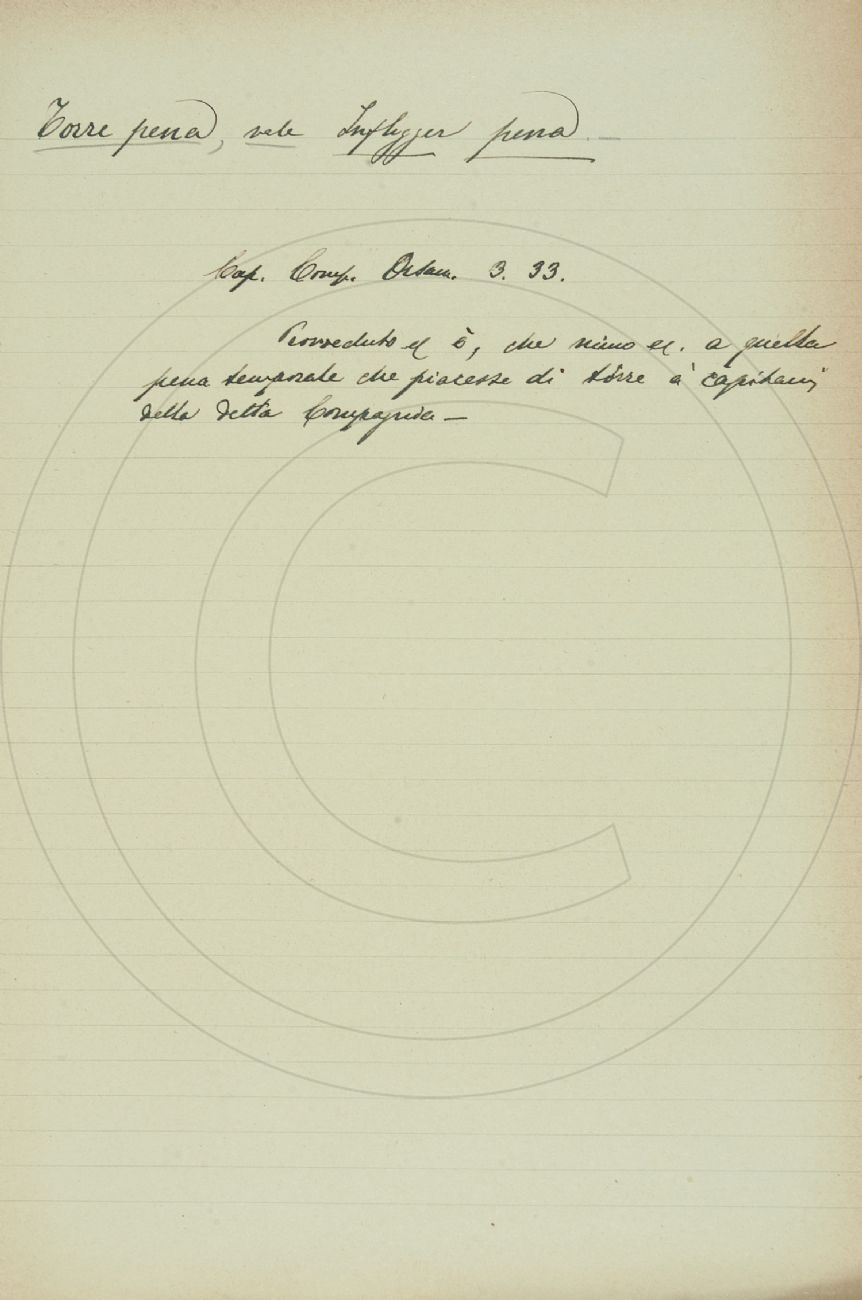 Torre pena, vale Infligger pena. —
Cap. Comp. Orsam. 3. 33.
Provveduto è, che niuno a quella
pena temporale che piacesse di tôrre a' capitani
della detta Compagnia —